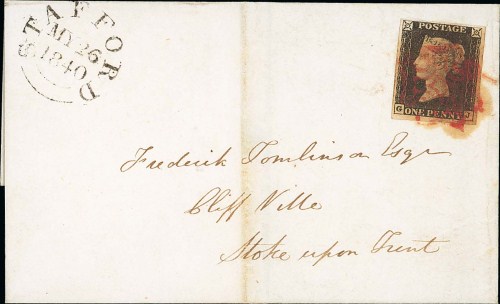 STAFFORD
MY 26
1840
POSTAGE
ONE PENNY
Frederick Tomlinson Esqr
Cliff Ville
Stoke upon Trent